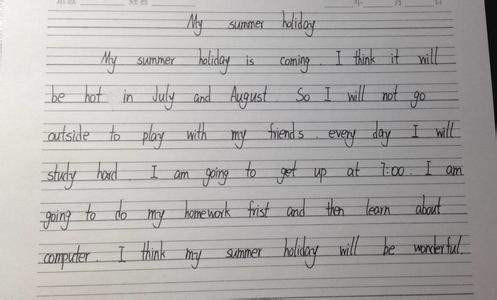 My summer holiday
My summer holiday is coming. I think it will
be hot in July and August. So I will not go
outside to play with my friends. every day I will
study hard. I am going to get up at 7:00. I am
going to do my homework frist and then learn about
computer. I think my summer holiday will be wonderful.